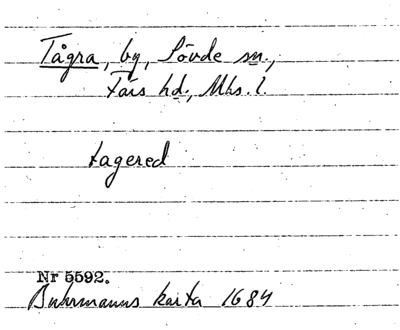 Tågra, by, Sövde sn.,
Färs hd., Mhs. l.
tagered
Nr 5592.
Buhrmanns karta 1684